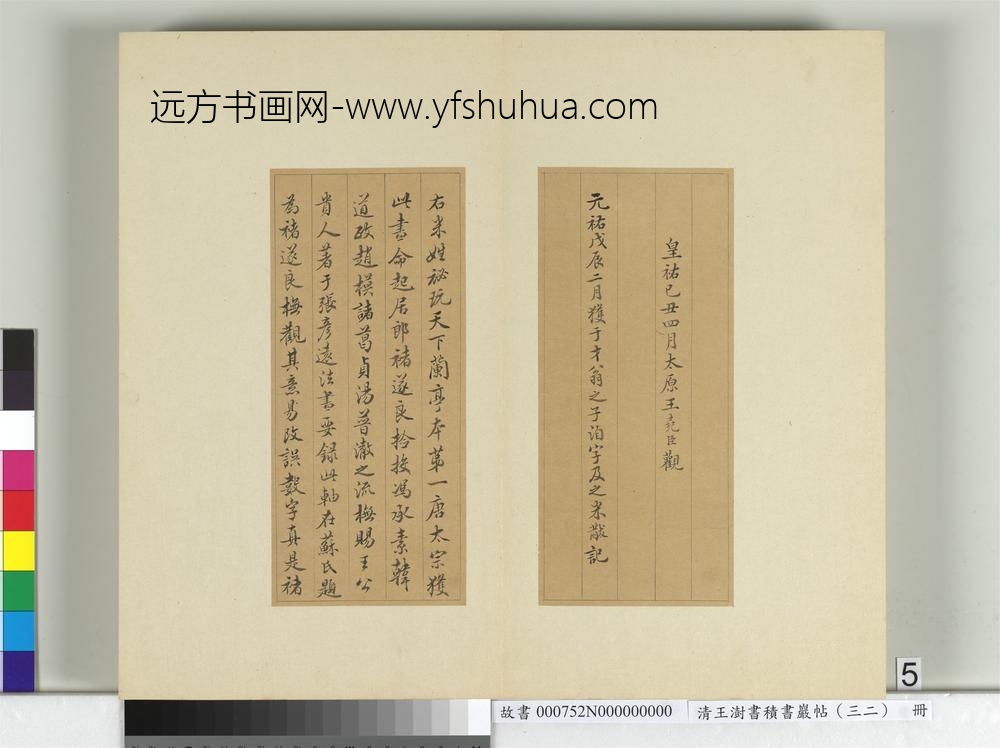 远方书画网-www.yfshuhua.com
皇祐己丑四月太原王堯臣觀
元祐戊辰二月獲于才翁之子洎字及之米黻記
右米姓祕玩天下蘭亭本第一唐太宗獲
此書命起居郎褚遂良拾挍馮承素韓
道政趙模諸葛貞湯普澈之流橅賜王公
貴人著于張彥遠法書要錄此軸在蘇氏題
為褚遂良橅觀其意易改誤數字真是褚
5
故書 000752N000000000 清王澍書積書巖帖（三二） 冊